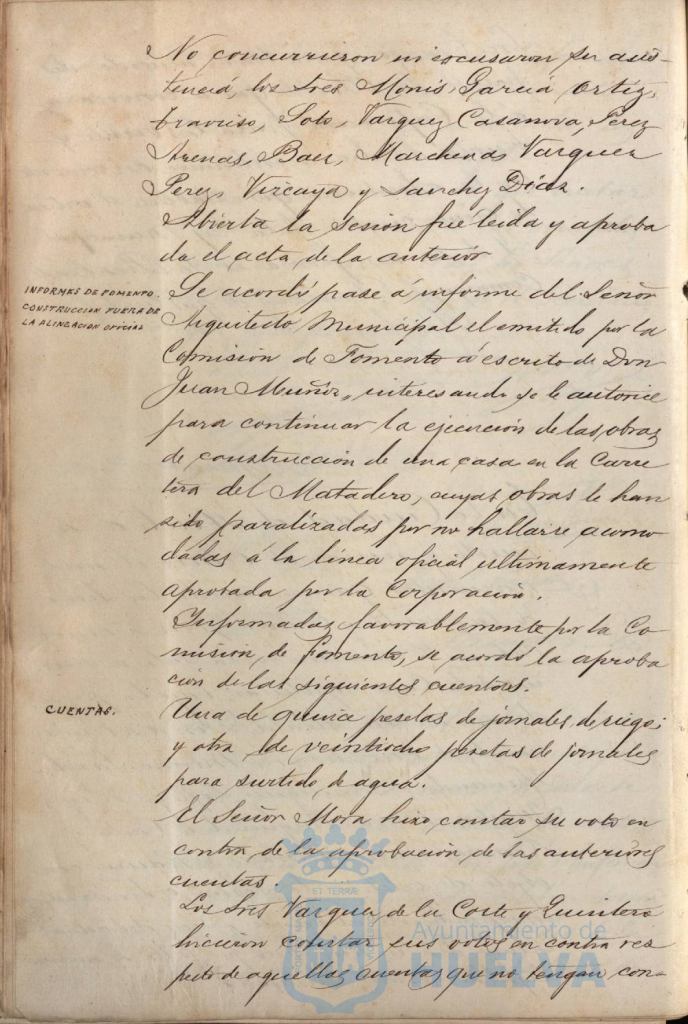 No concurrieron ni escusaron su asis-
tencia, los Sres Monis, Garcia Ortiz,
Travieso, Soto, Vazquez Casanova, Perez
Arenas, Baer, Marchena, Vazquez
Perez, Vizcaya y Sanchez Diaz.
Abierta la sesión fué leida y aproba
da el acta de la anterior
INFORMES DE FOMENTO.
CONSTRUCCION FUERA DE
LA ALINEACION OFICIAL
Se acordó pase á informe del Señor
Arquitecto Municipal el emitido por la
Comisión de Fomento á escrito de Don
Juan Muñoz, interesando se le autorice
para continuar la ejecución de las obras
de construcción de una casa en la Carre
tera del Matadero, cuyas obras le han
sido paralizadas por no hallarse acomo
dadas á la línea oficial ultimamente
aprobada por la Corporación.
Informadas favorablemente por la Co-
misión de Fomento, se acordó la aproba
ción de las siguientes cuentas.
CUENTAS.
Una de quince pesetas de jornales de riego;
y otra de veintiocho pesetas de jornales
para surtido de agua.
El Señor Mora hizo constar su voto en
contra de la aprobación de las anteriores
cuentas.
Los Sres Vazquez de la Corte y Quintero
hicieron constar sus votos en contra res
pecto de aquellas cuentas que no tengan con-
ET TERRÆ
Ayuntamiento de
HUELVA